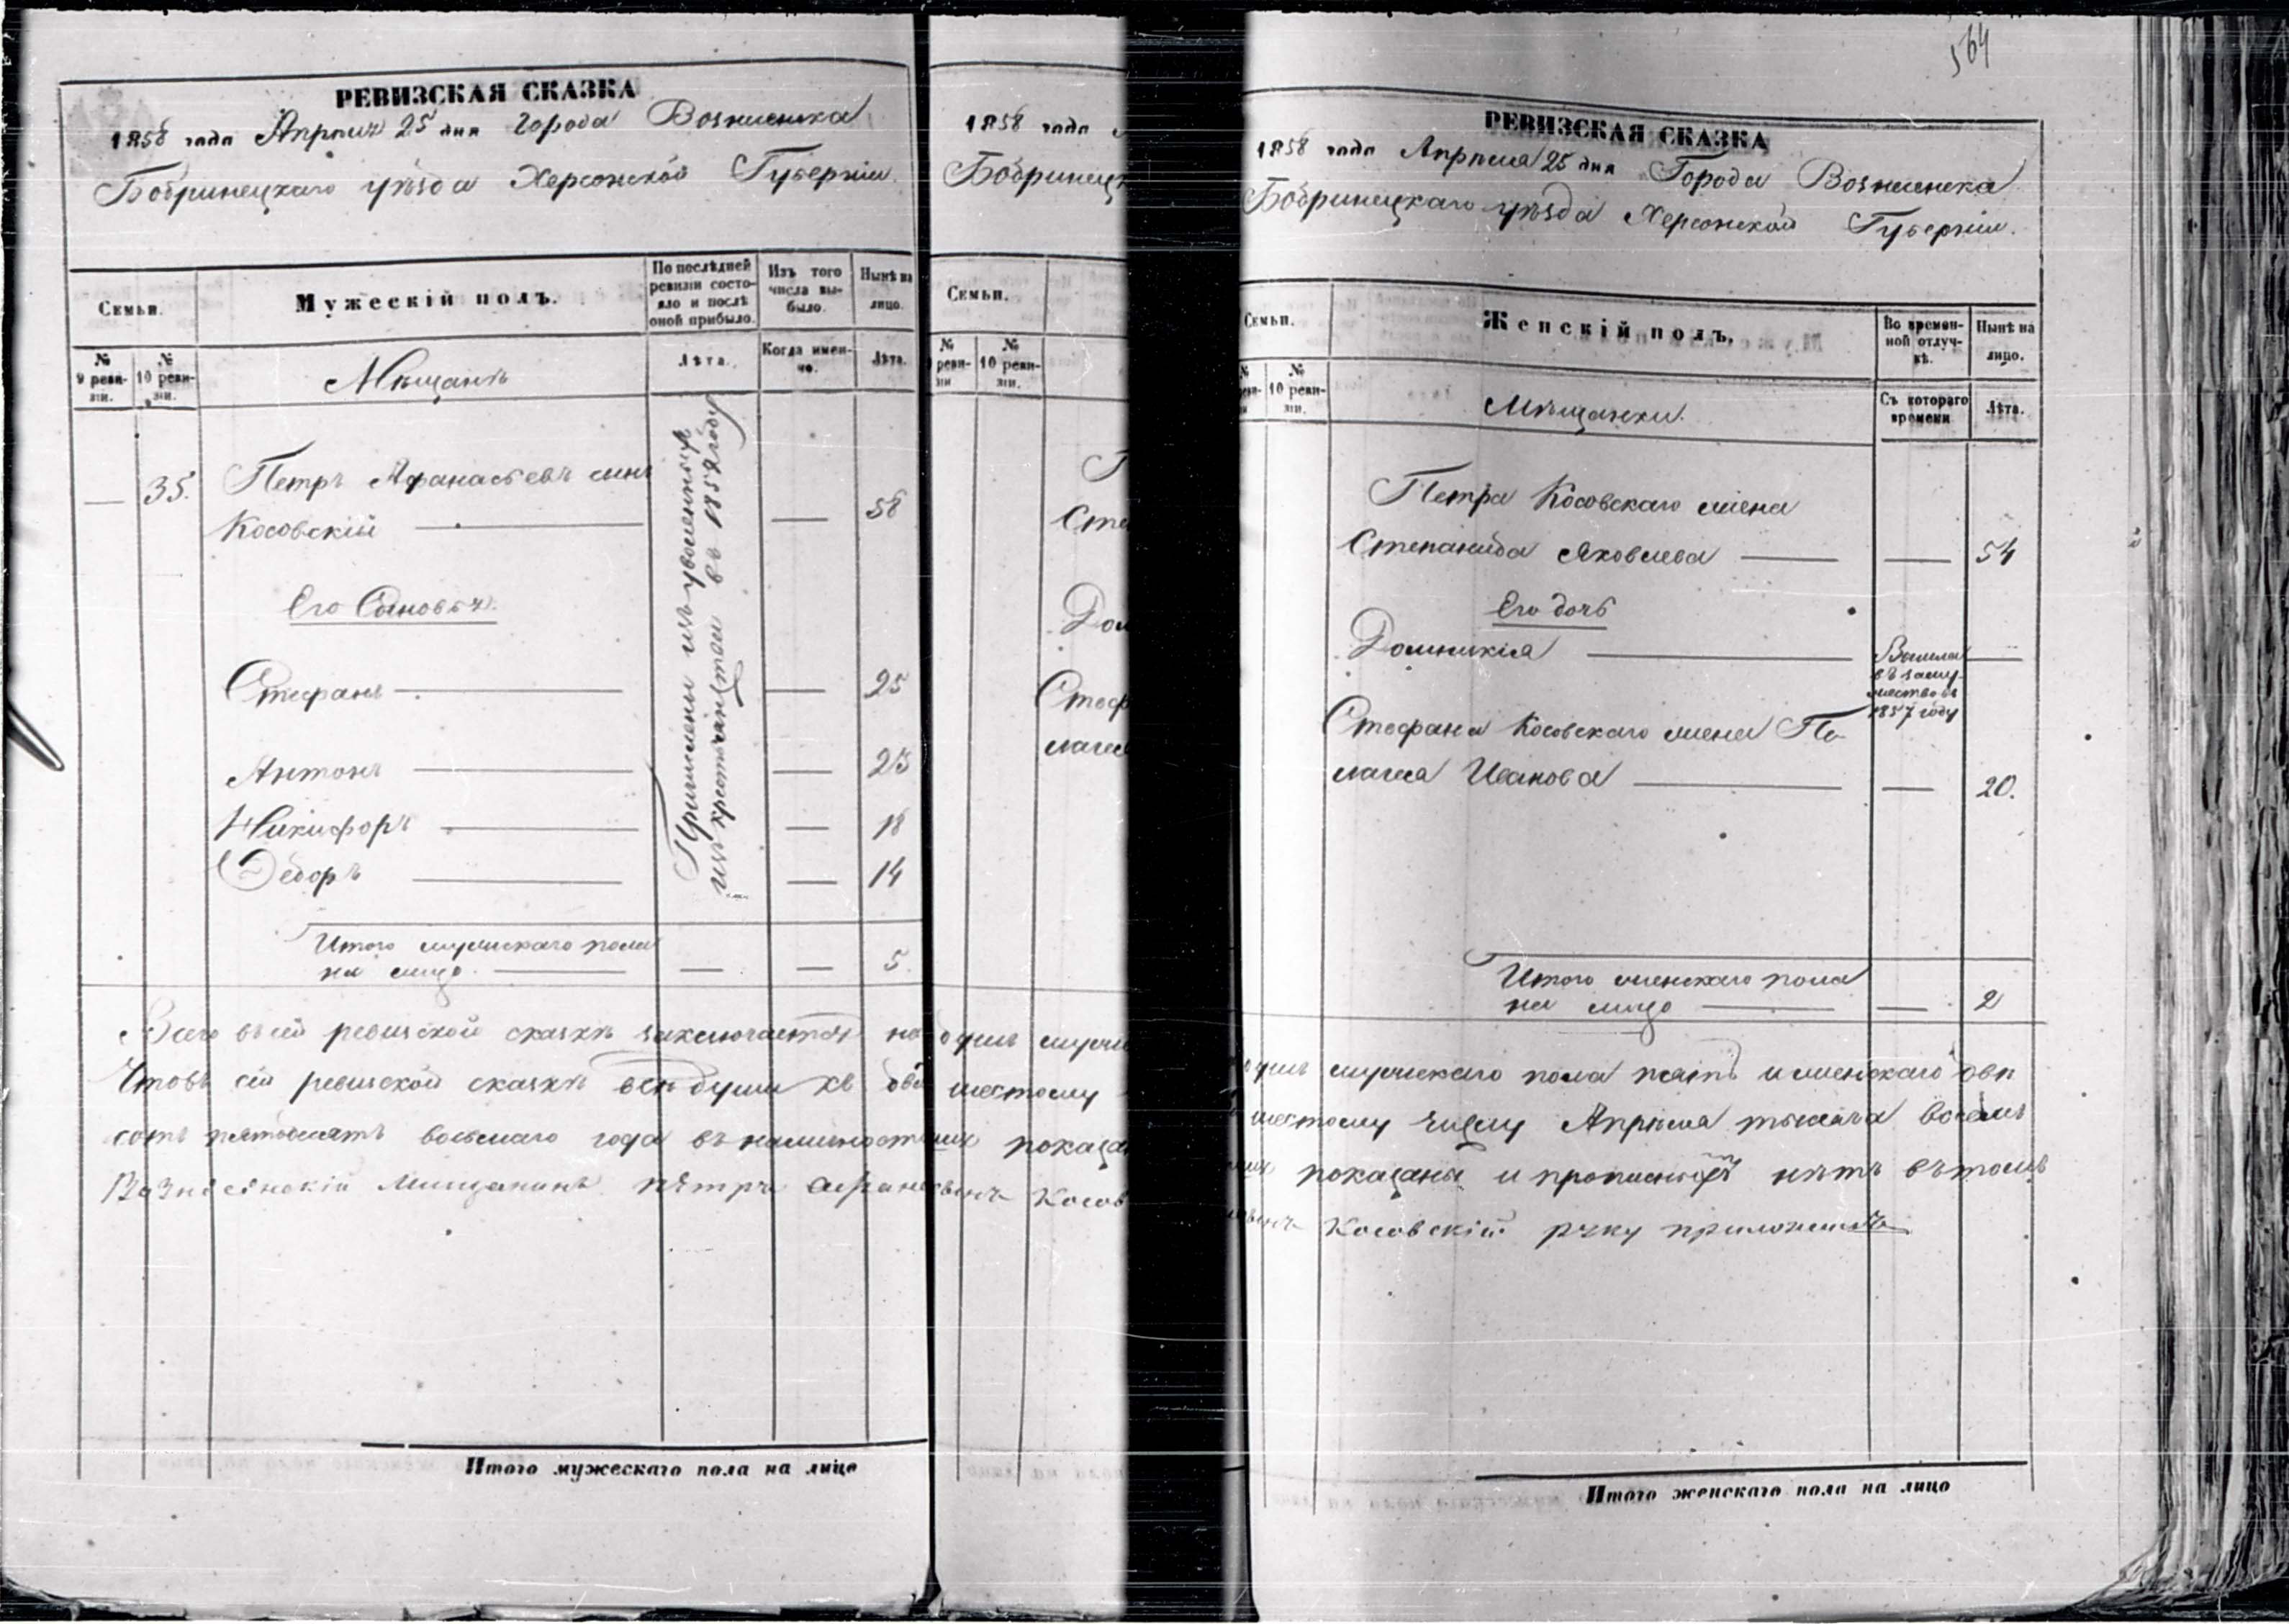 РЕВИЗСКАЯ СКАЗКА
1858 года Апреля 25 дня Города Вознесенска
Бобринецкаго уѣзда Херсонской Губерніи.
Семьи.
Мужескій полъ.
По послѣдней ревизіи состояло и послѣ оной прибыло.
Изъ того числа выбыло.
Нынѣ на лицо.
№ 9 ревизіи.
№ 10 ревизіи.
Мѣщанъ
Лѣта.
Когда именно.
Лѣта.
— 35. Петръ Афанасьевъ сынъ
Косовскій — — 58
Его Сыновья.
Стефанъ — — 25
Антонъ — — 23
Никифоръ — — 18
Федоръ — — 14
Причислены изъ уволенныхъ
изъ крестьянства въ 1852 году
Итого мужескаго пола
на лицо — — — 5.
Всего въ сей ревизской сказкѣ заключается на
Что въ сей ревизской сказкѣ всѣ души къ два
сотъ пятьдесятъ восьмаго года въ наличност
Вознесенскій Мищанинъ Пѣтръ Афана
Итого мужескаго пола на лицо
1858 года
Бобринецк
Семьи.
ревизіи
№ 10 ревизіи.
П
Сте
Дом
Стеф
лагея
лицѣ муже
шестому
показа
Косов
564
РЕВИЗСКАЯ СКАЗКА
1858 года Апрѣля 25 дня Города Вознесенска
Бобринецкаго уѣзда Херсонской Губерніи.
Семьи.
Женскій полъ.
Во временной отлучкѣ.
Нынѣ на лицо.
№ 10 ревизіи.
Мѣщанки.
Съ котораго времени
Лѣта.
Петра Косовскаго жена
Степанида Яковлева — — 54
Его дочь
Домникія — Вышла —
въ замужество въ
1857 году
Стефана Косовскаго жена Пе
лагея Иванова — — 20.
Итого женскаго пола
на лицо — — 2
лицѣ мужескаго пола пять и женскаго двѣ
шестому числу Апрѣля тысяча восемь
показаны и прописныхъ нѣтъ вътомъ
Косовскій руку приложилъ
Итого женскаго пола на лицо